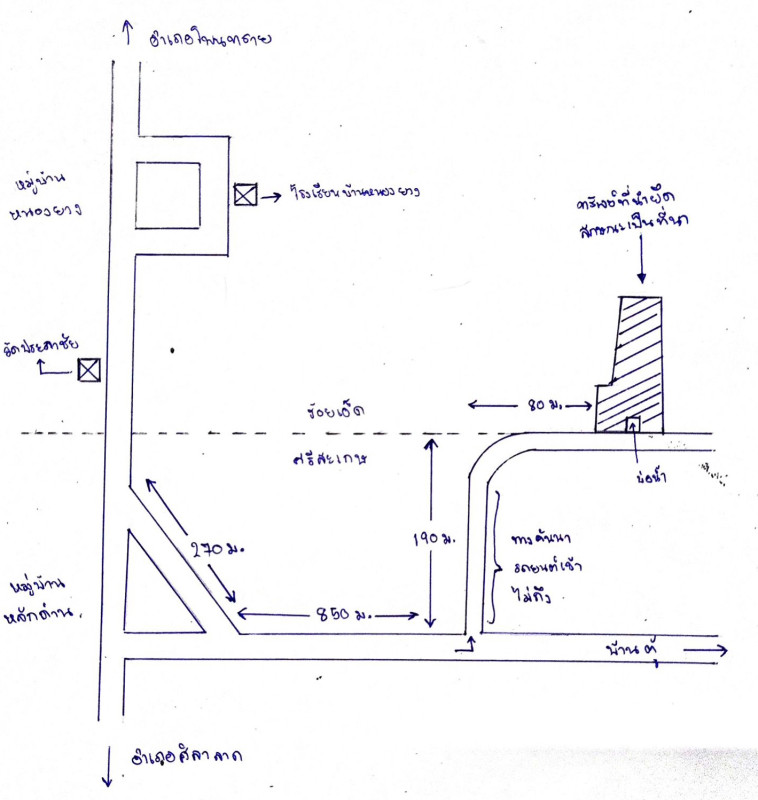 อำเภอโพนทราย
หมู่บ้าน
หนองยาง
โรงเรียนบ้านหนองยาง
ทรัพย์ที่นำยึด
ลักษณะเป็นที่นา
วัดประชาชัย
80 ม.
ร้อยเอ็ด
ศรีสะเกษ
บ่อน้ำ
270 ม.
190 ม.
ทางคันนา
รถยนต์เข้า
ไม่ถึง
หมู่บ้าน
หลักด่าน
850 ม.
บ้านตุ้
อำเภอศิลาลาด